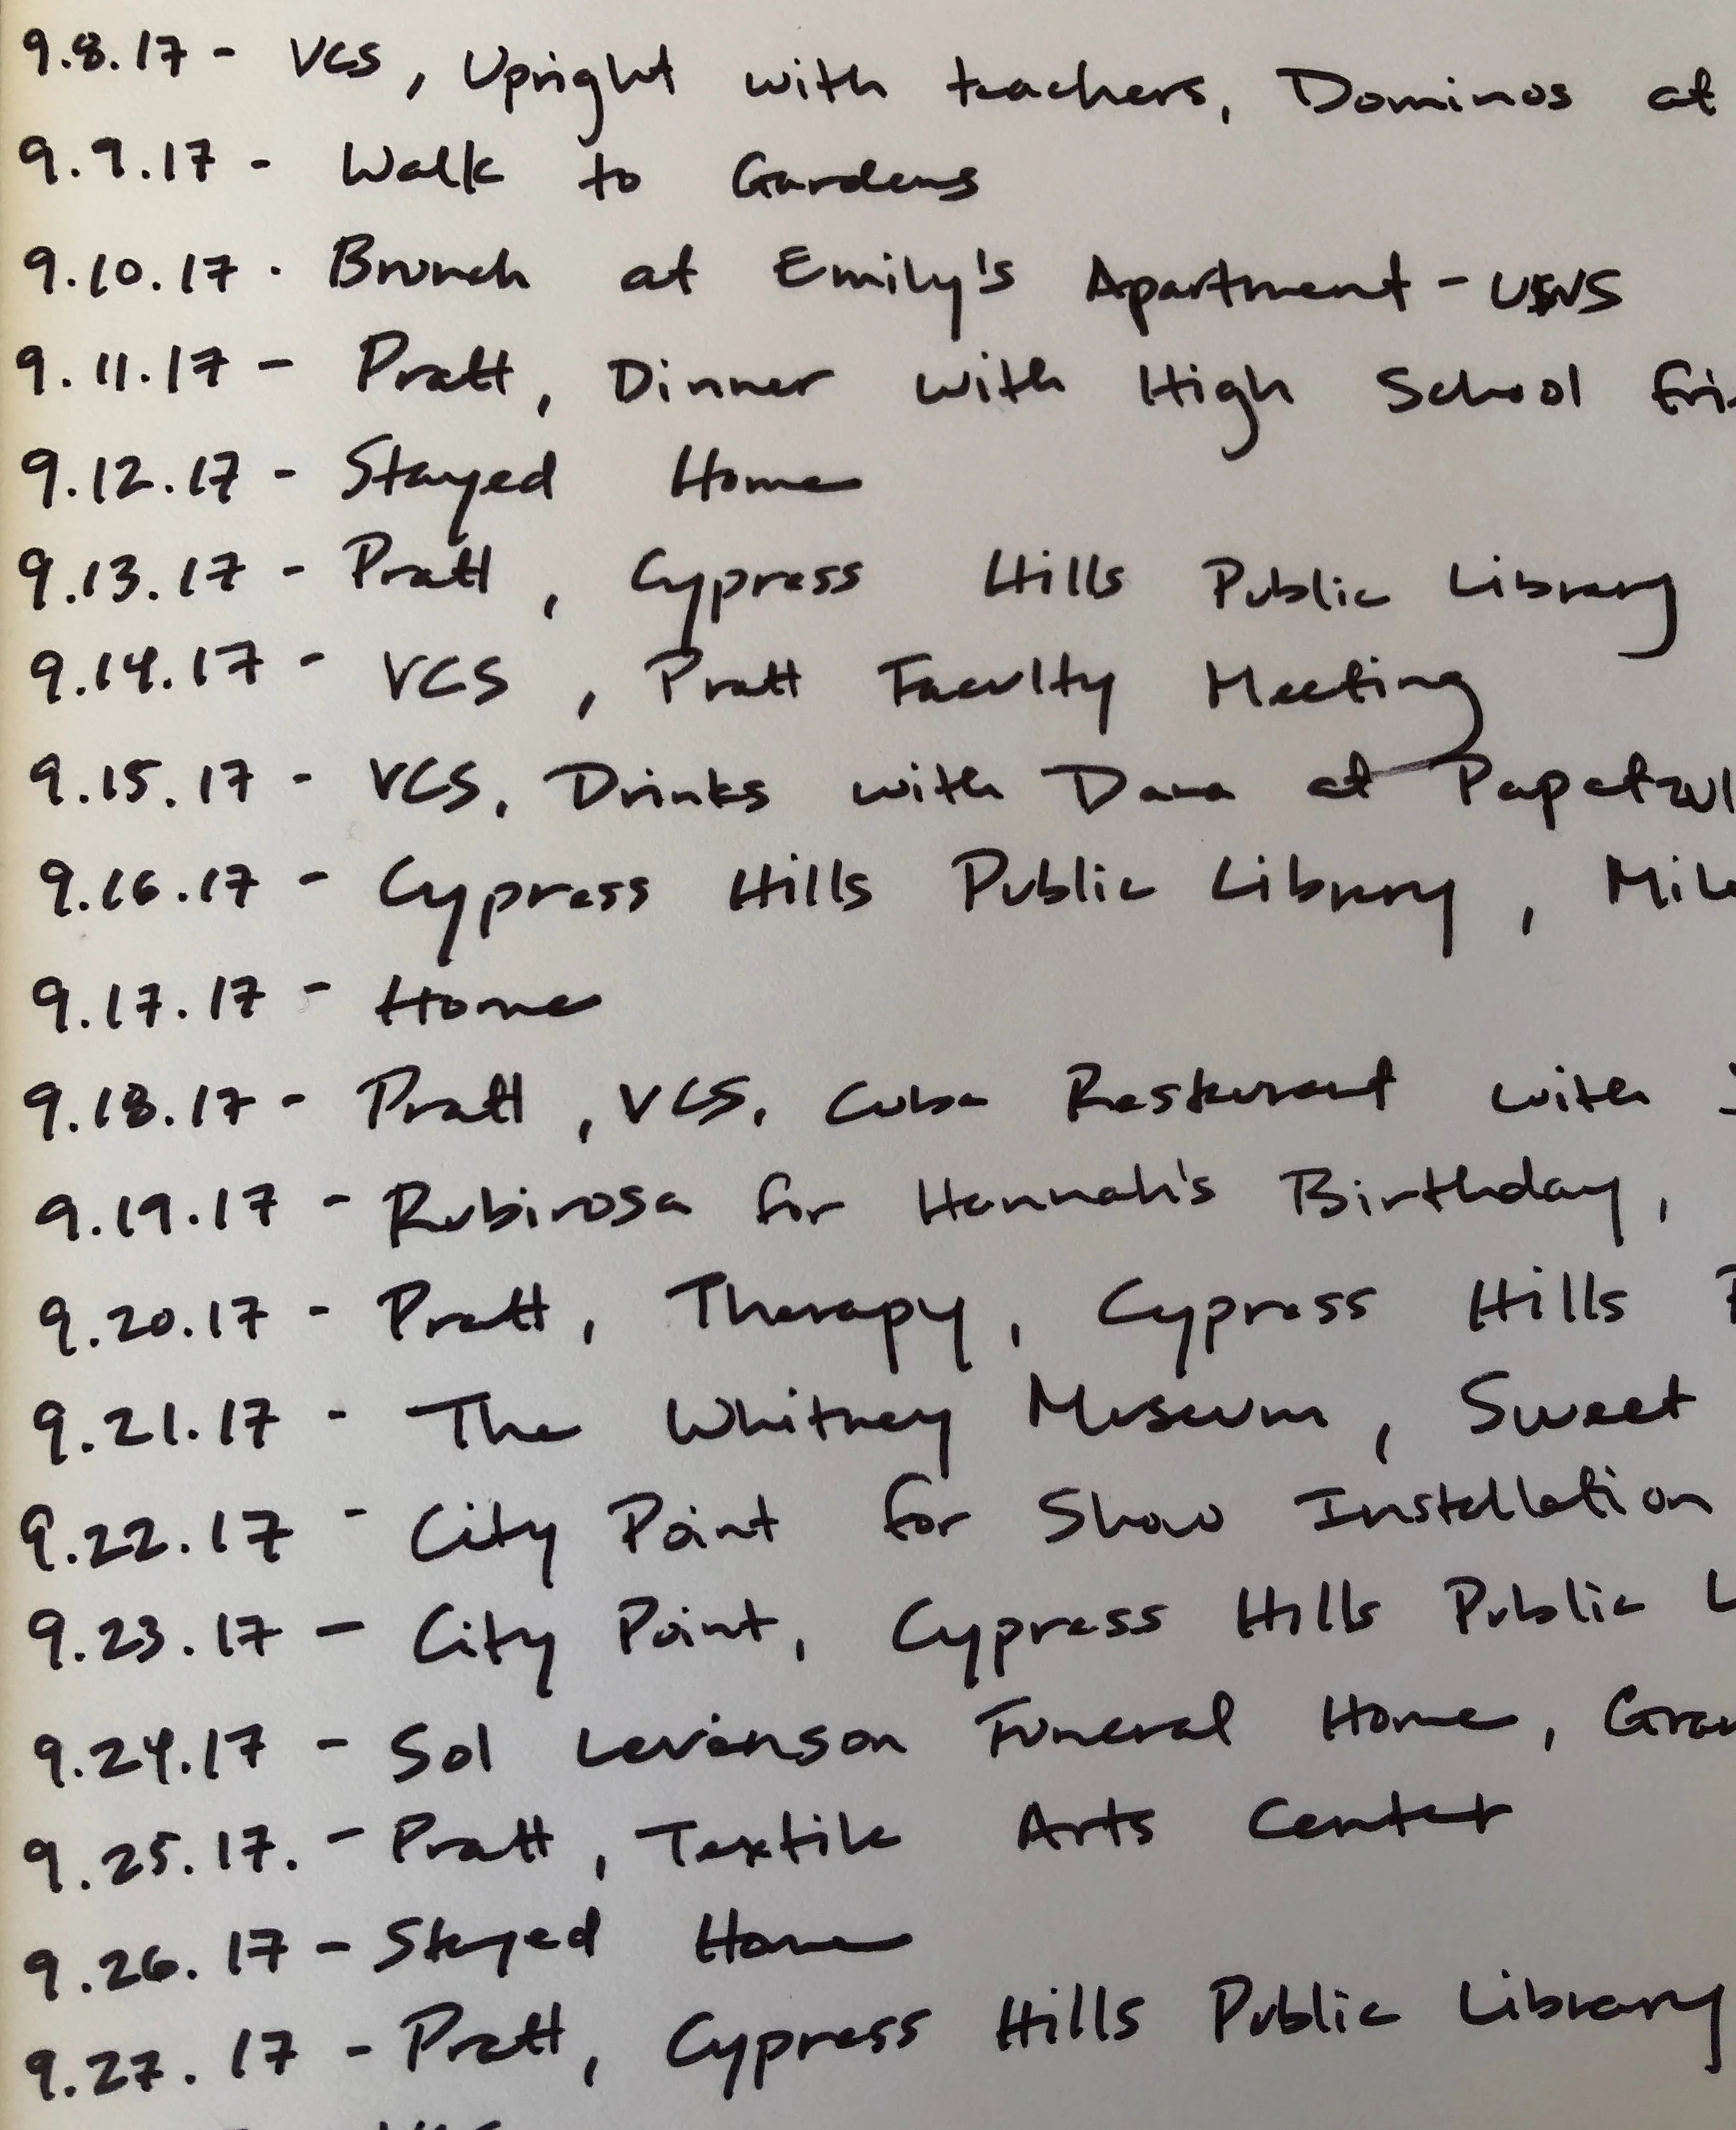 9.8.17 - VCS, Upright with teachers, Dominos at
9.9.17 - Walk to Gardens
9.10.17 - Brunch at Emily's Apartment - UWS
9.11.17 - Pratt, Dinner with High School fri
9.12.17 - Stayed Home
9.13.17 - Pratt, Cypress Hills Public Library
9.14.17 - VCS, Pratt Faculty Meeting
9.15.17 - VCS, Drinks with Dana at Papatzul
9.16.17 - Cypress Hills Public Library,
9.17.17 - Home
9.18.17 - Pratt, VCS, Cuba Resturant with
9.19.17 - Rubirosa for Hannah's Birthday,
9.20.17 - Pratt, Therapy, Cypress Hills
9.21.17 - The Whitney Museum, Sweet
9.22.17 - City Point for Show Installation
9.23.17 - City Point, Cypress Hills Public L
9.24.17 - Sol Levinson Funeral Home,
9.25.17. - Pratt, Textile Arts Center
9.26.17 - Stayed Home
9.27.17 - Pratt, Cypress Hills Public Library